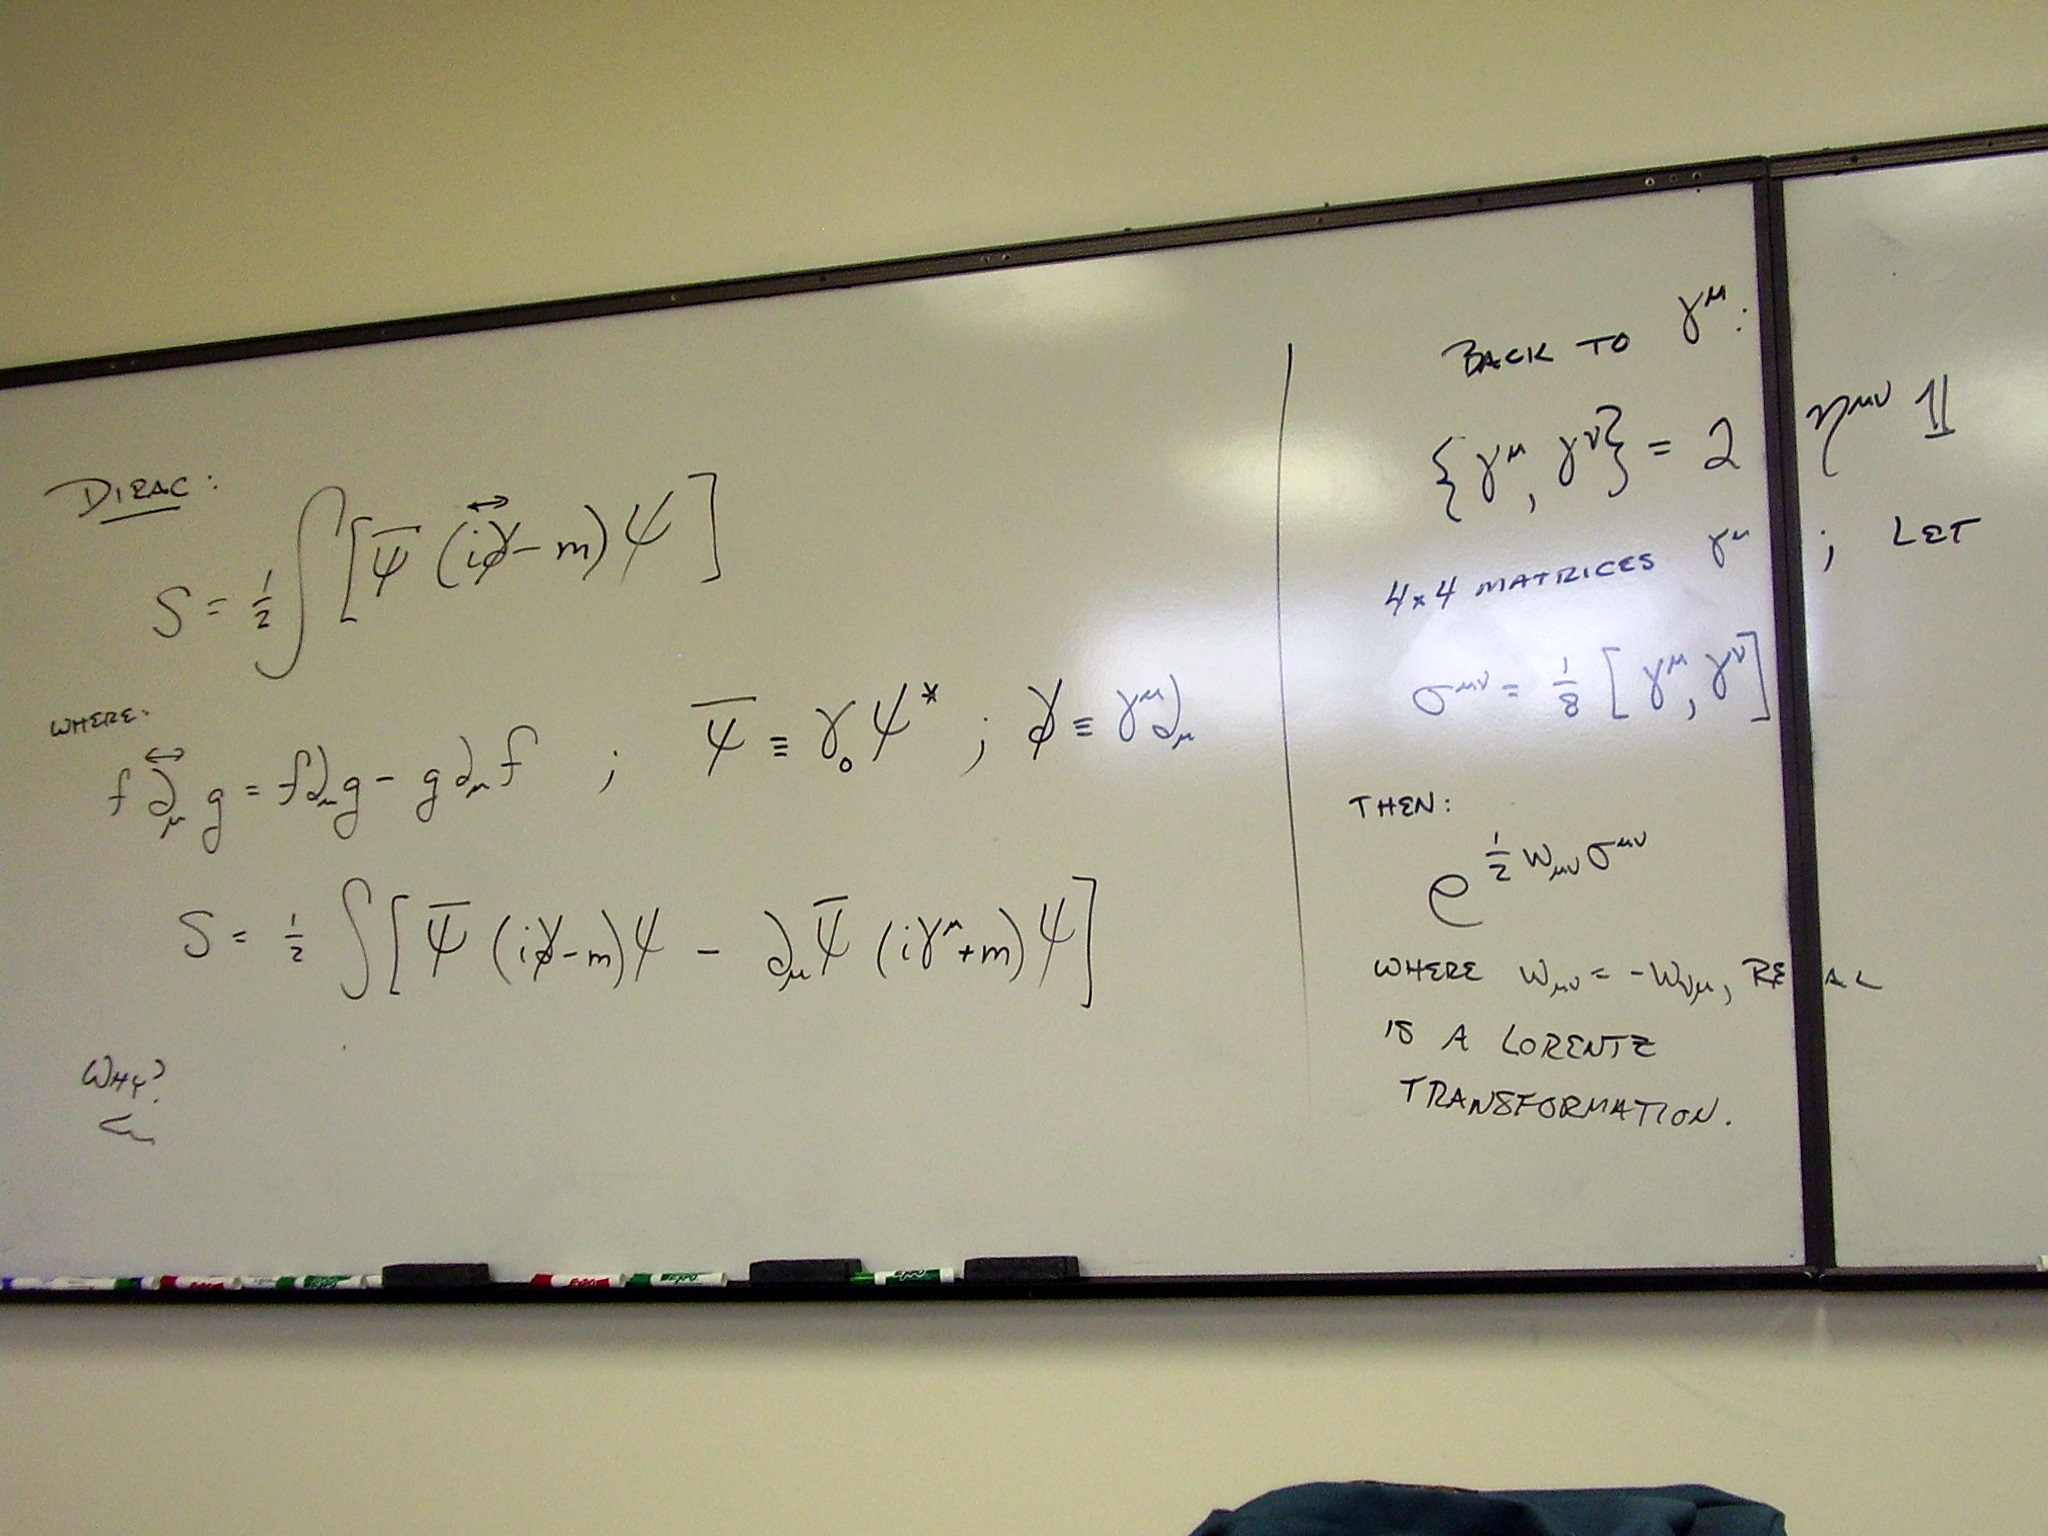 DIRAC:
S = ½ ∫ [ ψ̄ (i∂̸↔ - m) ψ ]
WHERE:
f ∂↔_μ g = f∂_μ g - g∂_μ f ; ψ̄ ≡ γ₀ψ* ; ∂̸ ≡ γ^μ ∂_μ
S = ½ ∫ [ ψ̄ (i∂̸ - m) ψ - ∂_μ ψ̄ (iγ^μ + m) ψ ]
WHY?
BACK TO γ^μ:
{γ^μ, γ^ν} = 2 η^μν 𝟙
4x4 MATRICES γ^μ ; LET
σ^μν = 1/8 [γ^μ, γ^ν]
THEN:
e^{½ W_μν σ^μν}
WHERE W_μν = -W_νμ, REAL
IS A LORENTZ
TRANSFORMATION.
EXPO
EXPO
EXPO